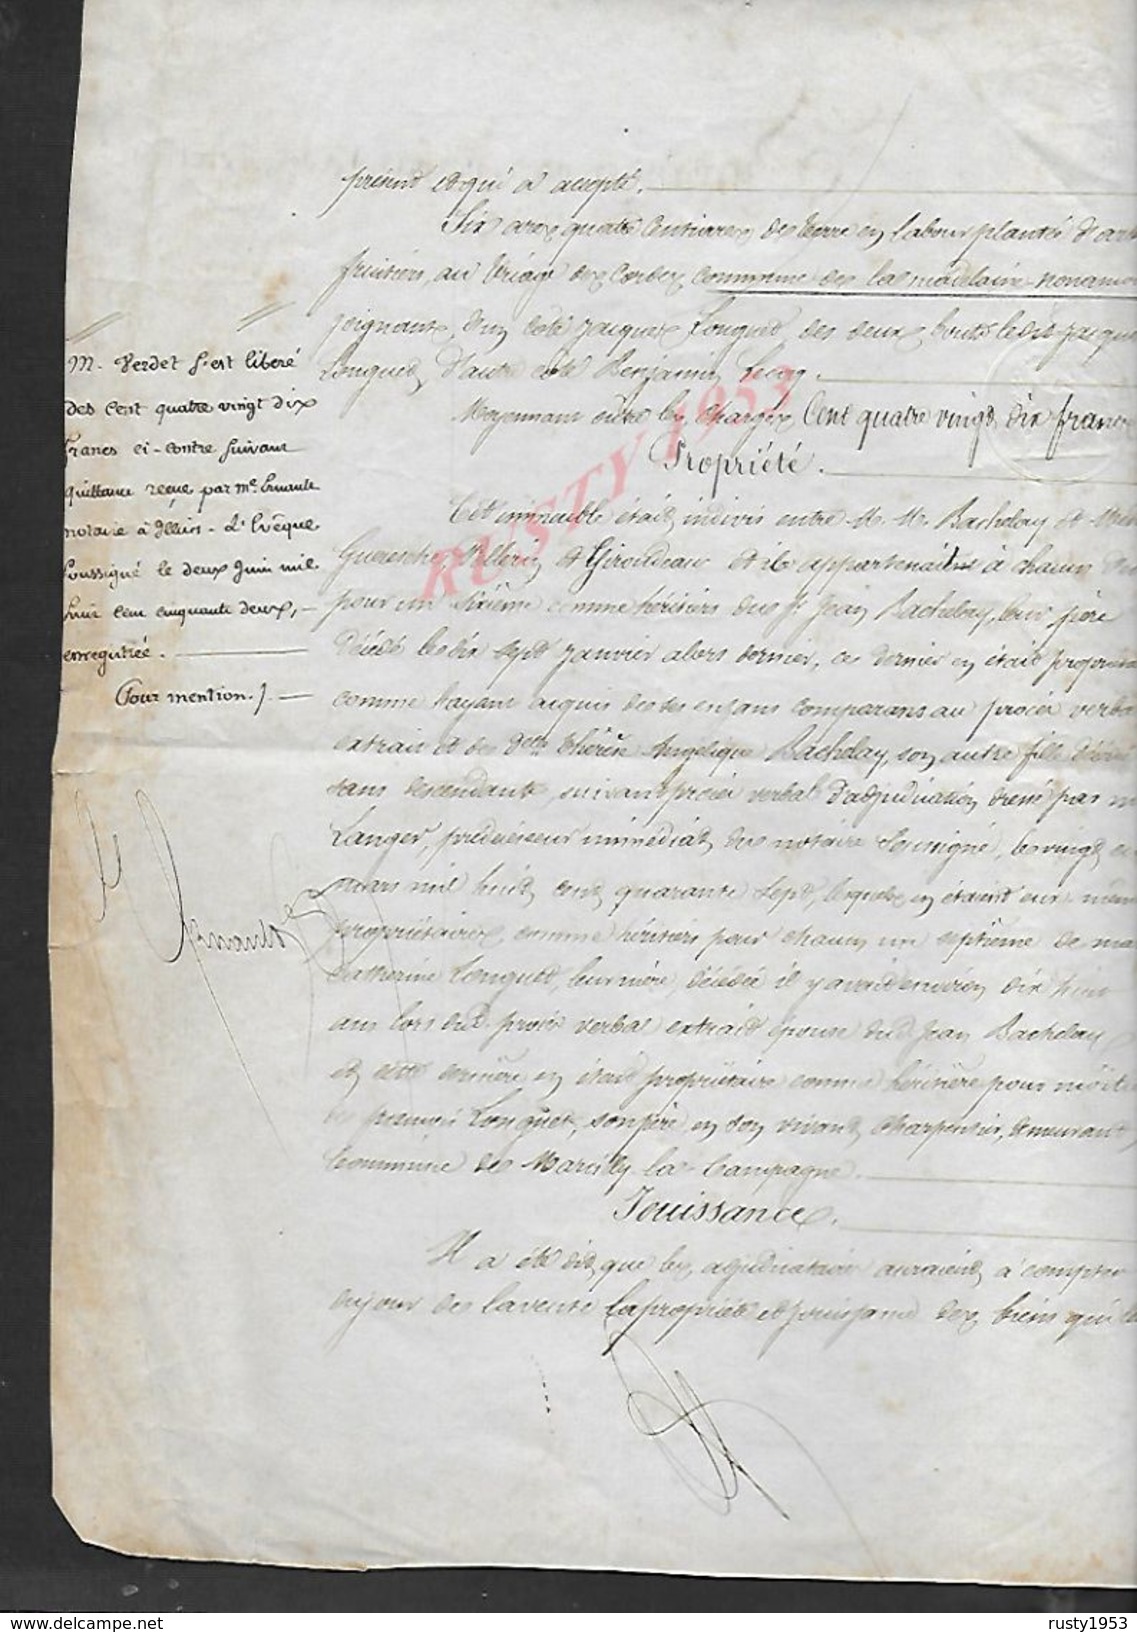 présent et qui a accepté.
Six ares quatre Centiares de terre en labour plantés d'arb
fruitiers, au triage des Cordes, commune de la Madelaine-Nonancou
joignant, d'un côté Jacques Longuet, des deux bouts ledit Jacques
Longuet, d'autre côté Benjamin Lecoq.
Moyennant outre les charges, Cent quatre vingt dix francs
Propriété.
Cet immeuble était indivis entre M. M. Bachelay et
Guerenthe, Pellerin et Giroudeau et il appartenait à chacun d'eux
pour un sixième comme héritiers du S. Jean Bachelay, leur père
décédé le dix sept janvier alors dernier, ce dernier en était propriétai
comme l'ayant acquis de ses enfans comparans au procès verbal
extrait et de Delle Thérèse Angélique Bachelay, son autre fille décédée
sans descendants, suivant procès verbal d'adjudication dressé par m
Langer, prédécesseur immédiat du notaire soussigné, le vingt
mars mil huit cent quarante sept, lesquels en étaient eux-mêmes
propriétaires, comme héritiers pour chacun un septième de
Catherine Longuet, leur mère, décédée il y avait environ dix huit
ans lors dudit procès verbal extrait épouse dudt Jean Bachelay
et cette dernière en était propriétaire comme héritière pour moitié
de François Longuet, son père en son vivant charpentier, demeurant
Commune de Marcilly la Campagne.
Jouissance.
Il a été dit que les adjudicataires auraient à compter
du jour de la vente la propriété et jouissance des biens qui
M. Verdet s'est libéré
des Cent quatre vingt dix
Francs ci-contre suivant
quittance reçue par Me Ernault
notaire à Illiers-L'Evêque
soussigné le deux Juin mil
huit cent cinquante deux,
enregistrée.
Pour mention.
Ernault
RUSTY 1953
rusty1953